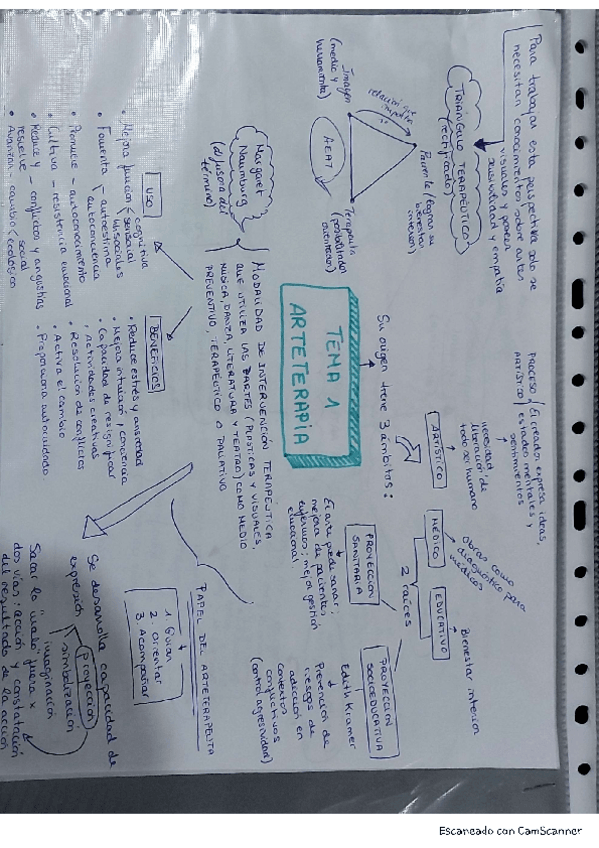 Para trabajar esta perspectiva solo se
necesitan conocimientos sobre artes
visuales y poseer
sensibilidad y empatía
TRIÁNGULO TERAPÉUTICO
(rectificado)
Imagen
(medio y
herramienta)
relación
Paciente (lograr su
bienestar
interior)
AEAT
Terapeuta
(posibilitador
Margaret
Naumburg
(difusora del
término)
TEMA 1
ARTETERAPIA
MODALIDAD DE INTERVENCIÓN TERAPÉUTICA
QUE UTILIZA LAS ARTES (PLÁSTICAS Y VISUALES,
MÚSICA, DANZA, LITERATURA Y TEATRO) COMO MEDIO
PREVENTIVO, TERAPÉUTICO O PALIATIVO
Su origen tiene 3 ámbitos:
PROCESO
ARTÍSTICO
El creador expresa ideas,
estados mentales y
sentimientos
ARTÍSTICO
necesidad
liberación de
todo ser humano
MÉDICO
Obras como
diagnóstico para
médicos
EDUCATIVO
Bienestar interior
2 raíces
PROYECCIÓN
SANITARIA
El arte puede sanar:
mejora de pacientes,
enfermos; mejor gestión
emocional
PROYECCIÓN
SOCIOEDUCATIVA
Edith Kramer
Prevención de
riesgos de
adicción en
contextos
conflictivos
(control agresividad)
USO
• Mejora función cognitiva
sensorial
hb sociales
• Fomenta autoestima
autoconciencia
• Promueve - autoconocimiento
• Cultiva - resistencia emocional
• Reduce y resuelve conflictos y angustias
• Avanzar - cambio social
ecológico
BENEFICIOS
• Reduce estrés y ansiedad
• Mejora intuición, conciencia
• Capacidad de resignificar
• Actividades creativas
• Resolución de conflictos
• Activa el cambio
• Proporciona autocuidado
PAPEL DEL ARTETERAPEUTA
1. Guiar
2. Orientar
3. Acompañar
Se desarrolla capacidad de
expresión
simbolización
imaginación
proyección
Sacar lo fuera x
dos vías: acción y constatación
del resultado de la acción
Escaneado con CamScanner